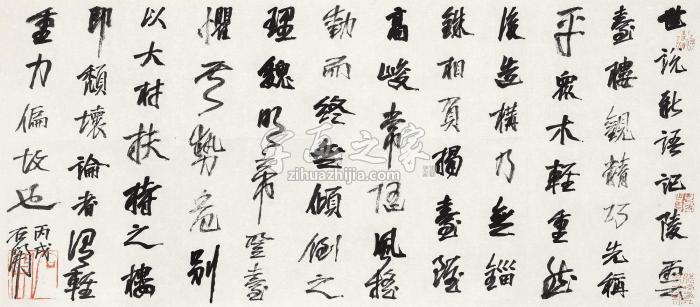 世說新語記陵雲
臺樓觀精巧先稱
平眾木輕重然
後造構乃無錙
銖相負揭臺雖
高峻常隨風搖
動而終無傾倒之
理魏明帝登臺
懼其勢危別
以大材扶持之樓
即頹壞論者謂輕
重力偏故也
丙戌
石開
字画之家
zihuazhijia.com